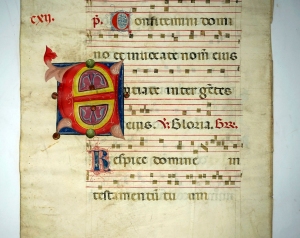 cxij. p̄. Confitemini domi
no et inuocate nom̄ eius
Entiate inter gentes
eius. V. Gloria. Erc.
Respice domine in
testamentū tuum